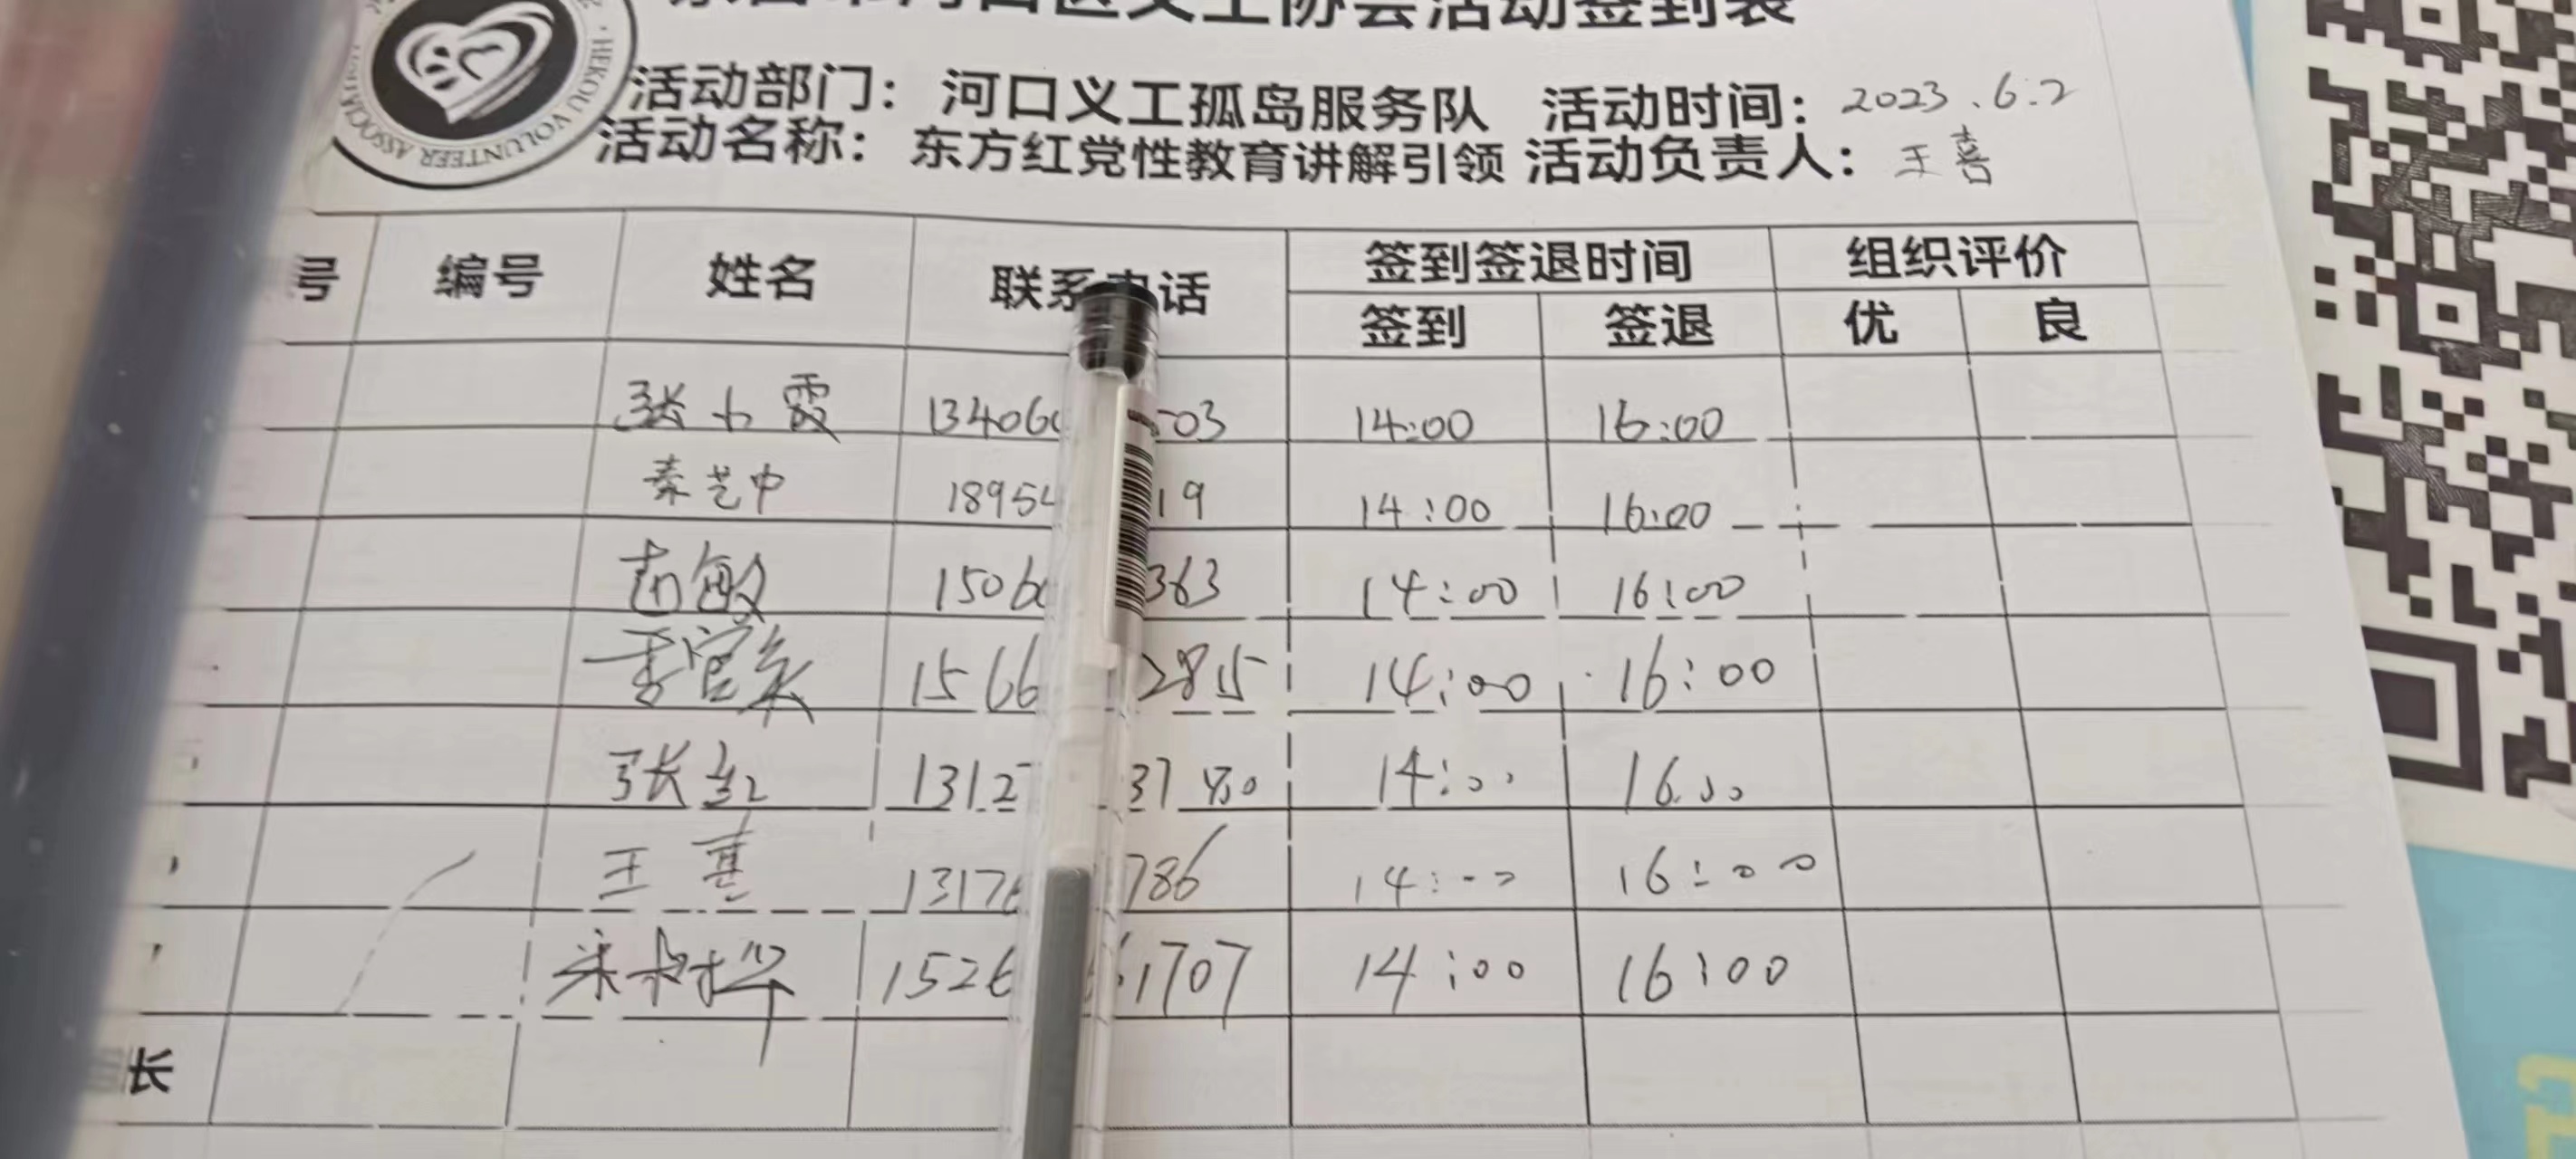 河口区义工协会活动签到表
HEKOU VOLUNTEER ASSOCIA
活动部门：河口义工孤岛服务队 活动时间：2023.6.2
活动名称：东方红党性教育讲解引领 活动负责人：王喜
号 编号 姓名 联系电话 签到签退时间 组织评价
签到 签退 优 良
张小霞 13406 503 14:00 16:00
秦艺中 18954 19 14:00 16:00
敏 1506 363 14:00 16:00
李官 1566 2815 14:00 16:00
张红 1312 3780 14:00 16:00
王喜 1317 786 14:00 16:00
宋 1526 1707 14:00 16:00
长